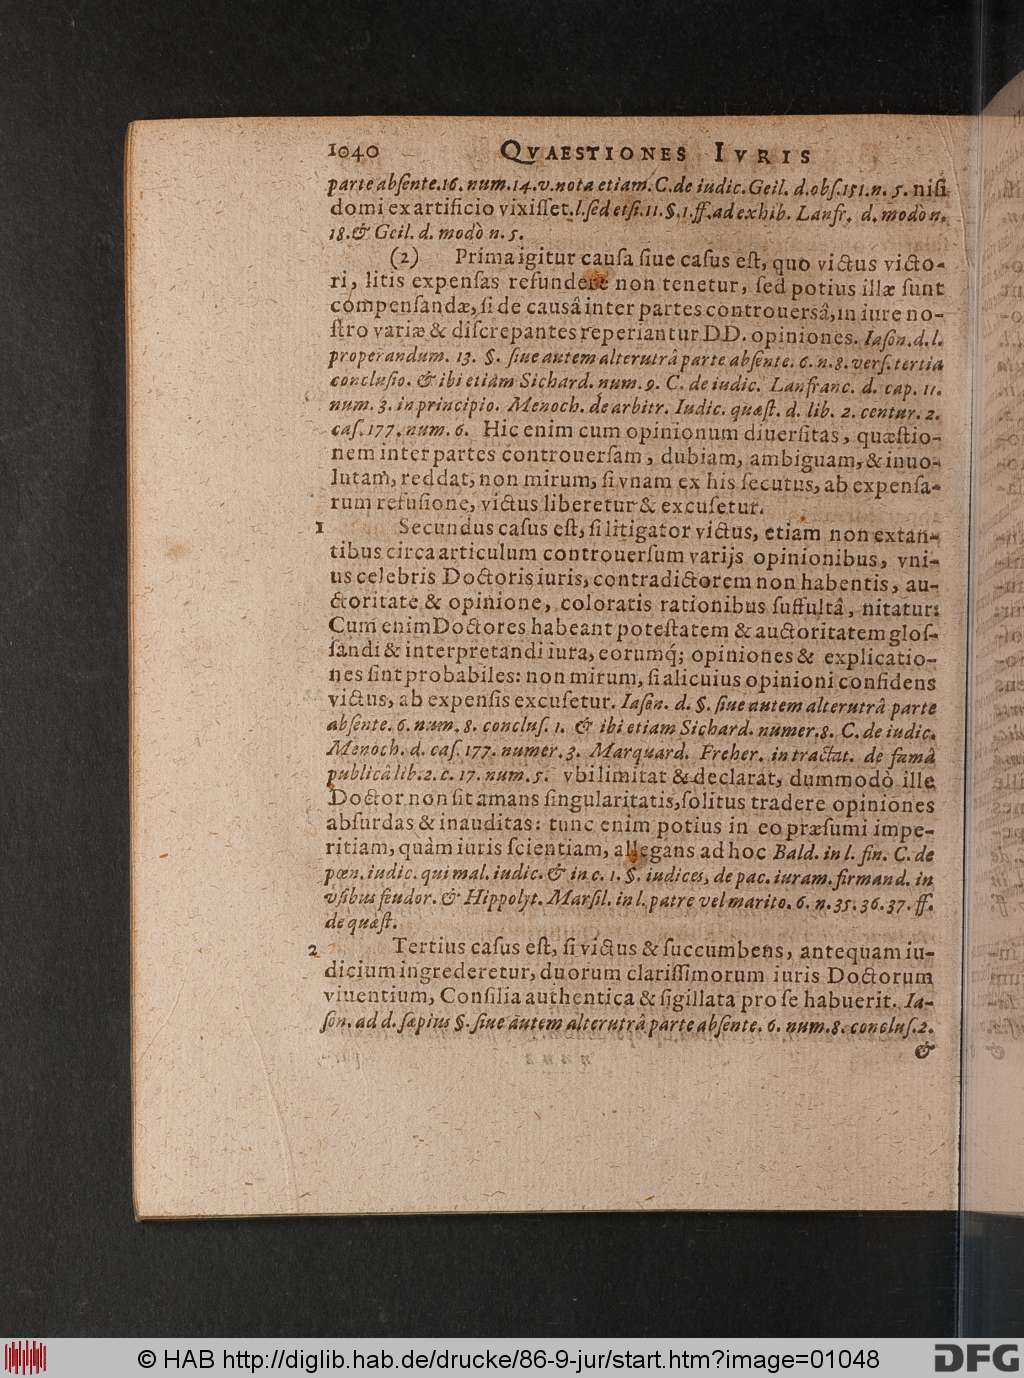 1040 QVAESTIONES IVRIS
parte absente.16. num.14.v.nota etiam. C.de iudic. Geil. d.obs.151.n. 5. nisi
domi ex artificio vixisset.l.sed etsi.11.§.1.ff.ad exhib. Lanfr. d. modò n.
18.& Geil. d. modò n. 5.
(2) Prima igitur causa siue casus est, quo victus victo-
ri, litis expensas refundere non tenetur, sed potius illæ sunt
compensandæ, si de causâ inter partes controuersâ, in iure no-
stro variæ & discrepantes reperiantur DD. opiniones. Iason.d.l.
properandum. 13. §. siue autem alterutrâ parte absente. 6. n.8. vers. tertia
conclusio. & ibi etiam Sichard. num. 9. C. de iudic. Lanfranc. d. cap. 11.
num. 3. in principio. Menoch. de arbitr. Iudic. quæst. d. lib. 2. centur. 2.
cas. 177. num. 6. Hic enim cum opinionum diuersitas, quæstio-
nem inter partes controuersam, dubiam, ambiguam, & inuo-
lutam, reddat; non mirum, si vnam ex his secutus, ab expensa-
rum refusione, victus liberetur & excusetur.
1 Secundus casus est, si litigator victus, etiam non extan-
tibus circa articulum controuersum varijs opinionibus, vni-
us celebris Doctoris iuris, contradictorem non habentis, au-
ctoritate & opinione, coloratis rationibus suffultâ, nitatur:
Cum enim Doctores habeant potestatem & auctoritatem glos-
sandi & interpretandi iura, eorumq́; opiniones & explicatio-
nes sint probabiles: non mirum, si alicuius opinioni confidens
victus, ab expensis excusetur. Iason. d. §. siue autem alterutrâ parte
absente. 6. num. 8. conclus. 1. & ibi etiam Sichard. numer.8. C. de iudic.
Menoch. d. cas. 177. numer. 3. Marquard. Freher. in tractat. de famâ
publicâ lib.2. c. 17. num. 5. vbi limitat & declarat, dummodò ille
Doctor non sit amans singularitatis, solitus tradere opiniones
absurdas & inauditas: tunc enim potius in eo præsumi impe-
ritiam, quàm iuris scientiam, allegans ad hoc Bald. in l. fin. C. de
pœn. iudic. qui mal. iudic. & in c. 1. §. iudices, de pac. iuram. firmand. in
vsibus feudor. & Hippolyt. Marsil. in l. patre vel marito. 6. n.35. 36. 37. ff.
de quæst.
2 Tertius casus est, si victus & succumbens, antequam iu-
dicium ingrederetur, duorum clarissimorum iuris Doctorum
viuentium, Consilia authentica & sigillata pro se habuerit. Ia-
son. ad d. sæpius §. siue autem alterutrâ parte absente. 6. num.8. conclus.2.
&
© HAB http://diglib.hab.de/drucke/86-9-jur/start.htm?image=01048 DFG